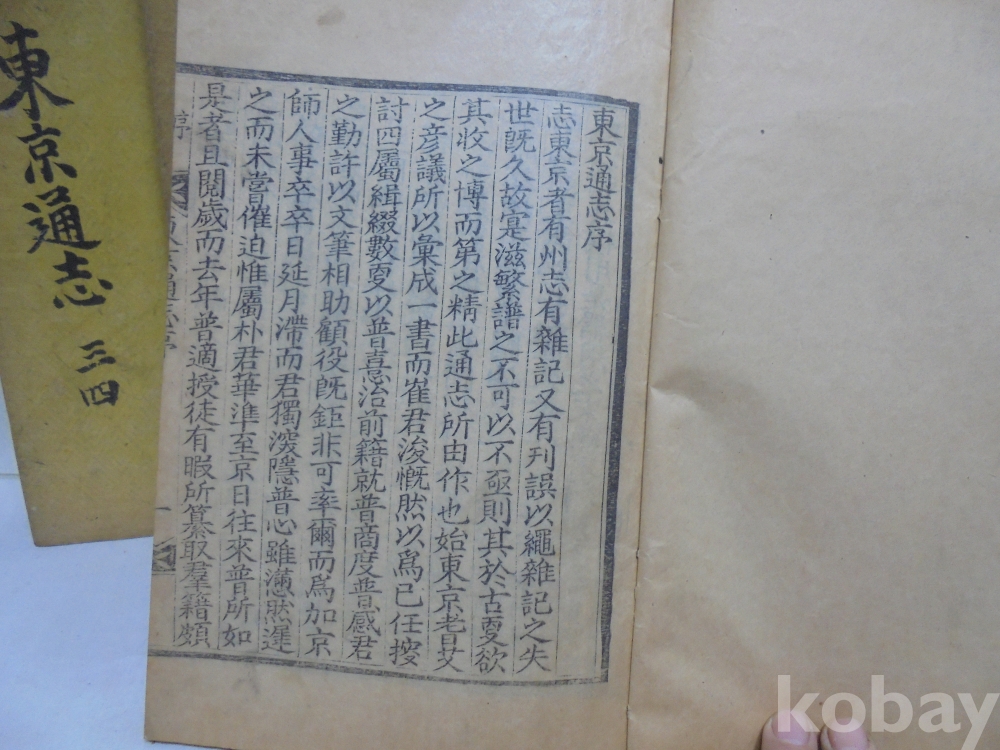 東京通志序
志東京者有州志有雜記又有刊誤以繩雜記之失
世旣久故寔滋繁譜之不可以不亟則其於古叓欲
其收之博而第之精此通志所由作也始東京老艾
之彦議所以彙成一書而崔君浚慨然以爲己任按
討四屬緝綴數叓以普憙治前籍就普商度普感君
之勤許以文筆相助顧役旣鉅非可率爾而爲加京
師人事卒卒日延月滯而君獨湥隱普心雖懣然遲
之而未嘗催迫惟屬朴君華準至京日往來普所如
是者且閱歲而去年普適授徒有暇所纂取羣籍頗
序
東京通志序
一
東京通志 三四
kobay